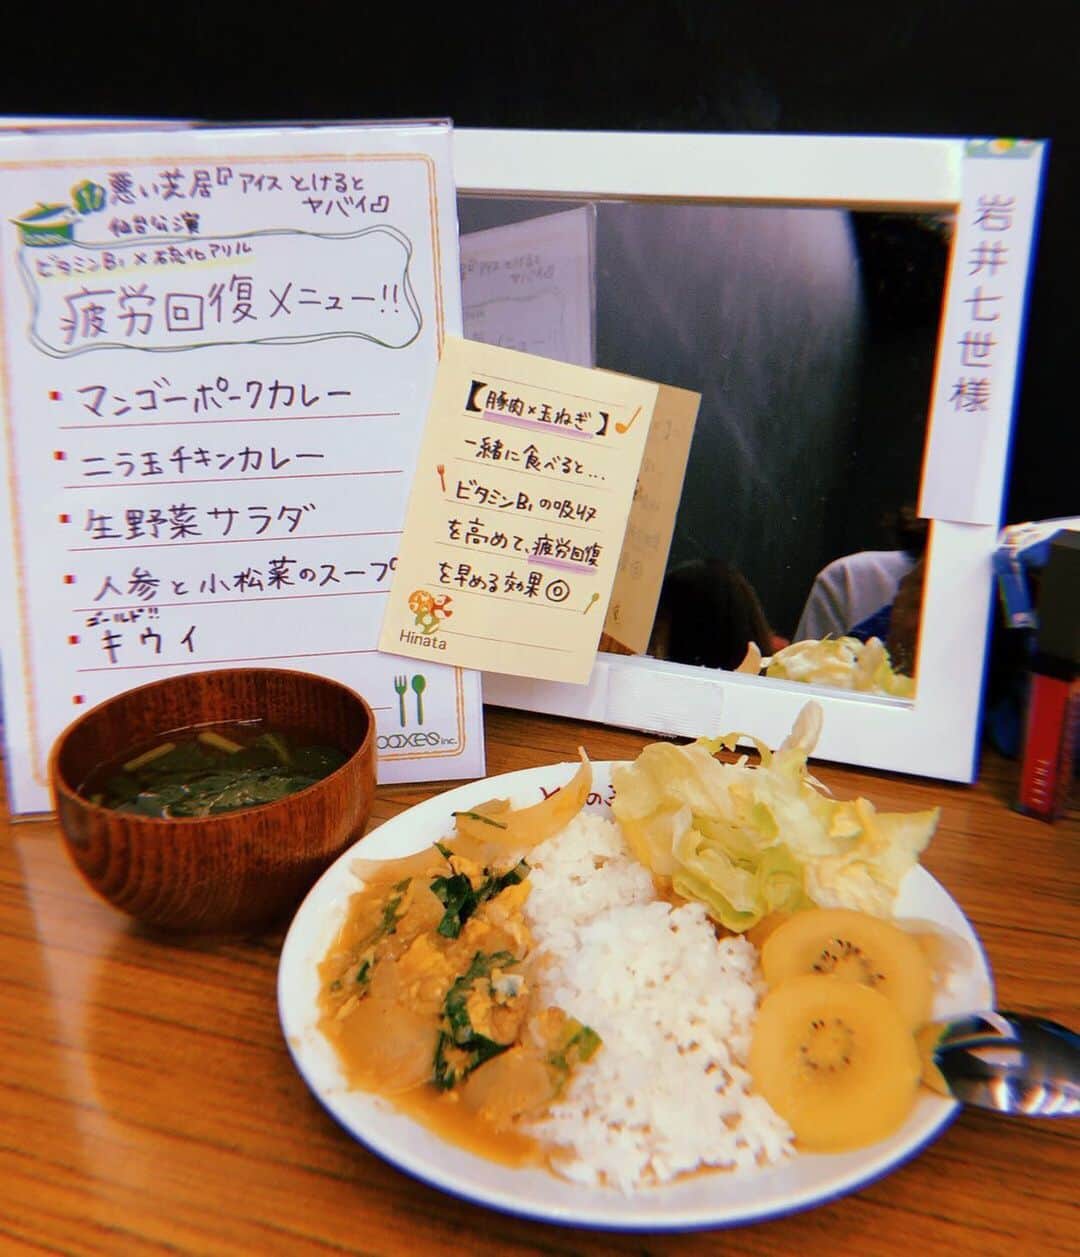 悪い芝居『アイスとけると
ヤバイ』
仙台公演
ビタミンB₁×硫化アリル
疲労回復メニュー!!
マンゴーポークカレー
ニラ玉チキンカレー
生野菜サラダ
人参と小松菜のスープ
ゴールド!!
キウイ
【豚肉×玉ねぎ】
一緒に食べると…
ビタミンB₁の吸収
を高めて、疲労回復
を早める効果◎
Hinata
inc.
岩井七世様
THREE